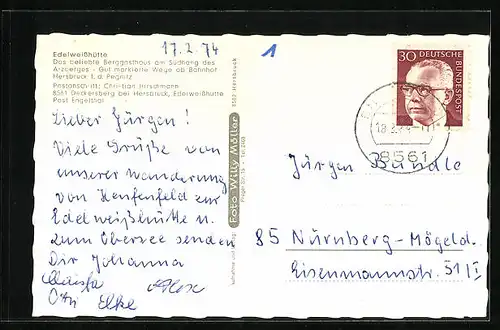 17.2.74
1
Edelweißhütte
Das beliebte Berggasthaus am Südhang des
Arzberges - Gut markierte Wege ab Bahnhof
Hersbruck r. d. Pegnitz
Postanschrift: Christian Hirschmann
8561 Deckersberg bei Hersbruck, Edelweißhütte
Post Engelthal
Lieber Jürgen!
Viele Grüße von
unserer Wanderung
von Henfenfeld zur
Edelweißhütte u.
zum Obersee senden
Dir Johanna
Elke
Foto Willy Müller
8562 Hersbruck
30
DEUTSCHE
BUNDESPOST
8561
Jürgen Bundle
85 Nürnberg-Mögeld.
Eisenmannstr. 51/I